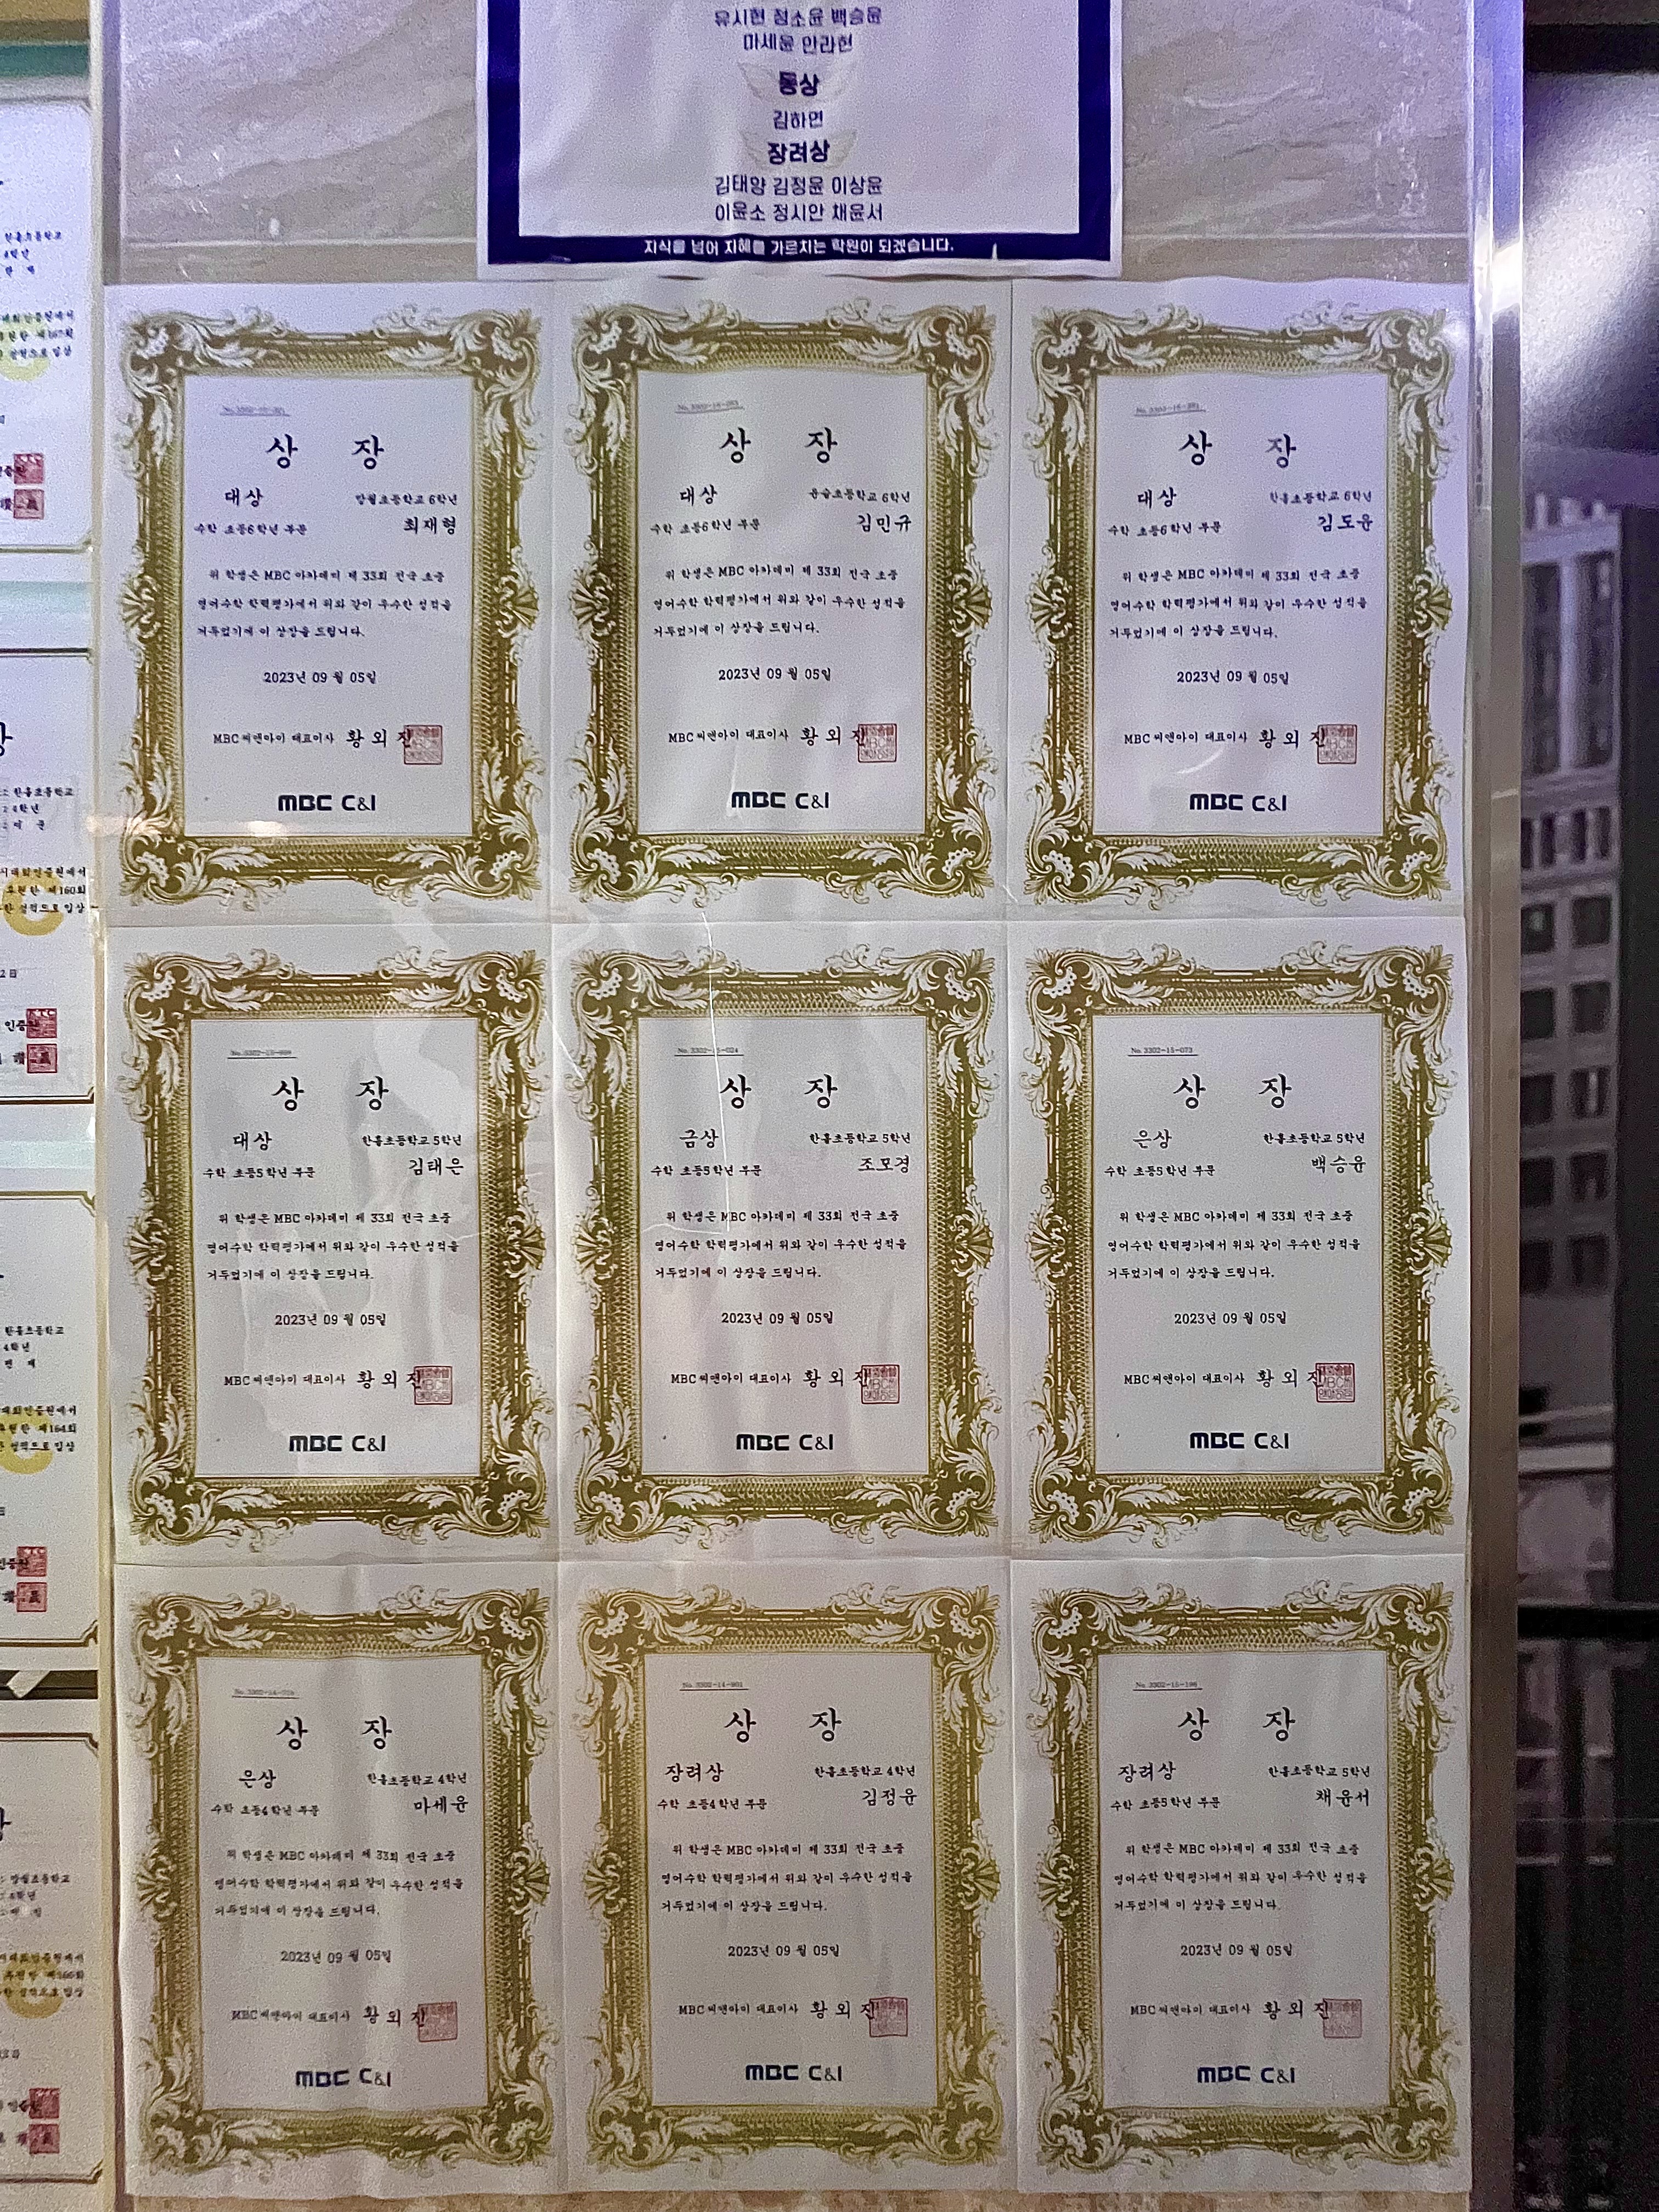 유시현 정소윤 백승윤
마세윤 안라현
동상
김하연
장려상
김태양 김정윤 이상윤
이윤소 정시안 채윤서
지식을 넘어 지혜를 가르치는 학원이 되겠습니다.
상 장
대상
망월초등학교 6학년
수학 초등6학년 부문
최재형
위 학생은 MBC 아카데미 제 33회 전국 초중
영어수학 학력평가에서 위와 같이 우수한 성적을
거두었기에 이 상장을 드립니다.
2023년 09 월 05일
MBC씨앤아이 대표이사 황 외 진
MBC C&I
상 장
대상
초등학교 6학년
수학 초등6학년 부문
김민규
위 학생은 MBC 아카데미 제 33회 전국 초중
영어수학 학력평가에서 위와 같이 우수한 성적을
거두었기에 이 상장을 드립니다.
2023년 09 월 05일
MBC씨앤아이 대표이사 황 외 진
MBC C&I
상 장
대상
한홀초등학교 6학년
수학 초등6학년 부문
김도윤
위 학생은 MBC 아카데미 제 33회 전국 초중
영어수학 학력평가에서 위와 같이 우수한 성적을
거두었기에 이 상장을 드립니다.
2023년 09 월 05일
MBC씨앤아이 대표이사 황 외 진
MBC C&I
상 장
대상
한홀초등학교 5학년
수학 초등5학년 부문
김태은
위 학생은 MBC 아카데미 제 33회 전국 초중
영어수학 학력평가에서 위와 같이 우수한 성적을
거두었기에 이 상장을 드립니다.
2023년 09 월 05일
MBC씨앤아이 대표이사 황 외 진
MBC C&I
No.3302-15-024
상 장
금상
한홀초등학교 5학년
수학 초등5학년 부문
조모경
위 학생은 MBC 아카데미 제 33회 전국 초중
영어수학 학력평가에서 위와 같이 우수한 성적을
거두었기에 이 상장을 드립니다.
2023년 09 월 05일
MBC씨앤아이 대표이사 황 외 진
MBC C&I
No.3302-15-073
상 장
은상
한홀초등학교 5학년
수학 초등5학년 부문
백승윤
위 학생은 MBC 아카데미 제 33회 전국 초중
영어수학 학력평가에서 위와 같이 우수한 성적을
거두었기에 이 상장을 드립니다.
2023년 09 월 05일
MBC씨앤아이 대표이사 황 외 진
MBC C&I
상 장
은상
한홀초등학교 4학년
수학 초등4학년 부문
마세윤
위 학생은 MBC 아카데미 제 33회 전국 초중
영어수학 학력평가에서 위와 같이 우수한 성적을
거두었기에 이 상장을 드립니다.
2023년 09 월 05일
MBC씨앤아이 대표이사 황 외 진
MBC C&I
상 장
장려상
한홀초등학교 4학년
수학 초등4학년 부문
김정윤
위 학생은 MBC 아카데미 제 33회 전국 초중
영어수학 학력평가에서 위와 같이 우수한 성적을
거두었기에 이 상장을 드립니다.
2023년 09 월 05일
MBC씨앤아이 대표이사 황 외 진
MBC C&I
상 장
장려상
한홀초등학교 5학년
수학 초등5학년 부문
채윤서
위 학생은 MBC 아카데미 제 33회 전국 초중
영어수학 학력평가에서 위와 같이 우수한 성적을
거두었기에 이 상장을 드립니다.
2023년 09 월 05일
MBC씨앤아이 대표이사 황 외 진
MBC C&I